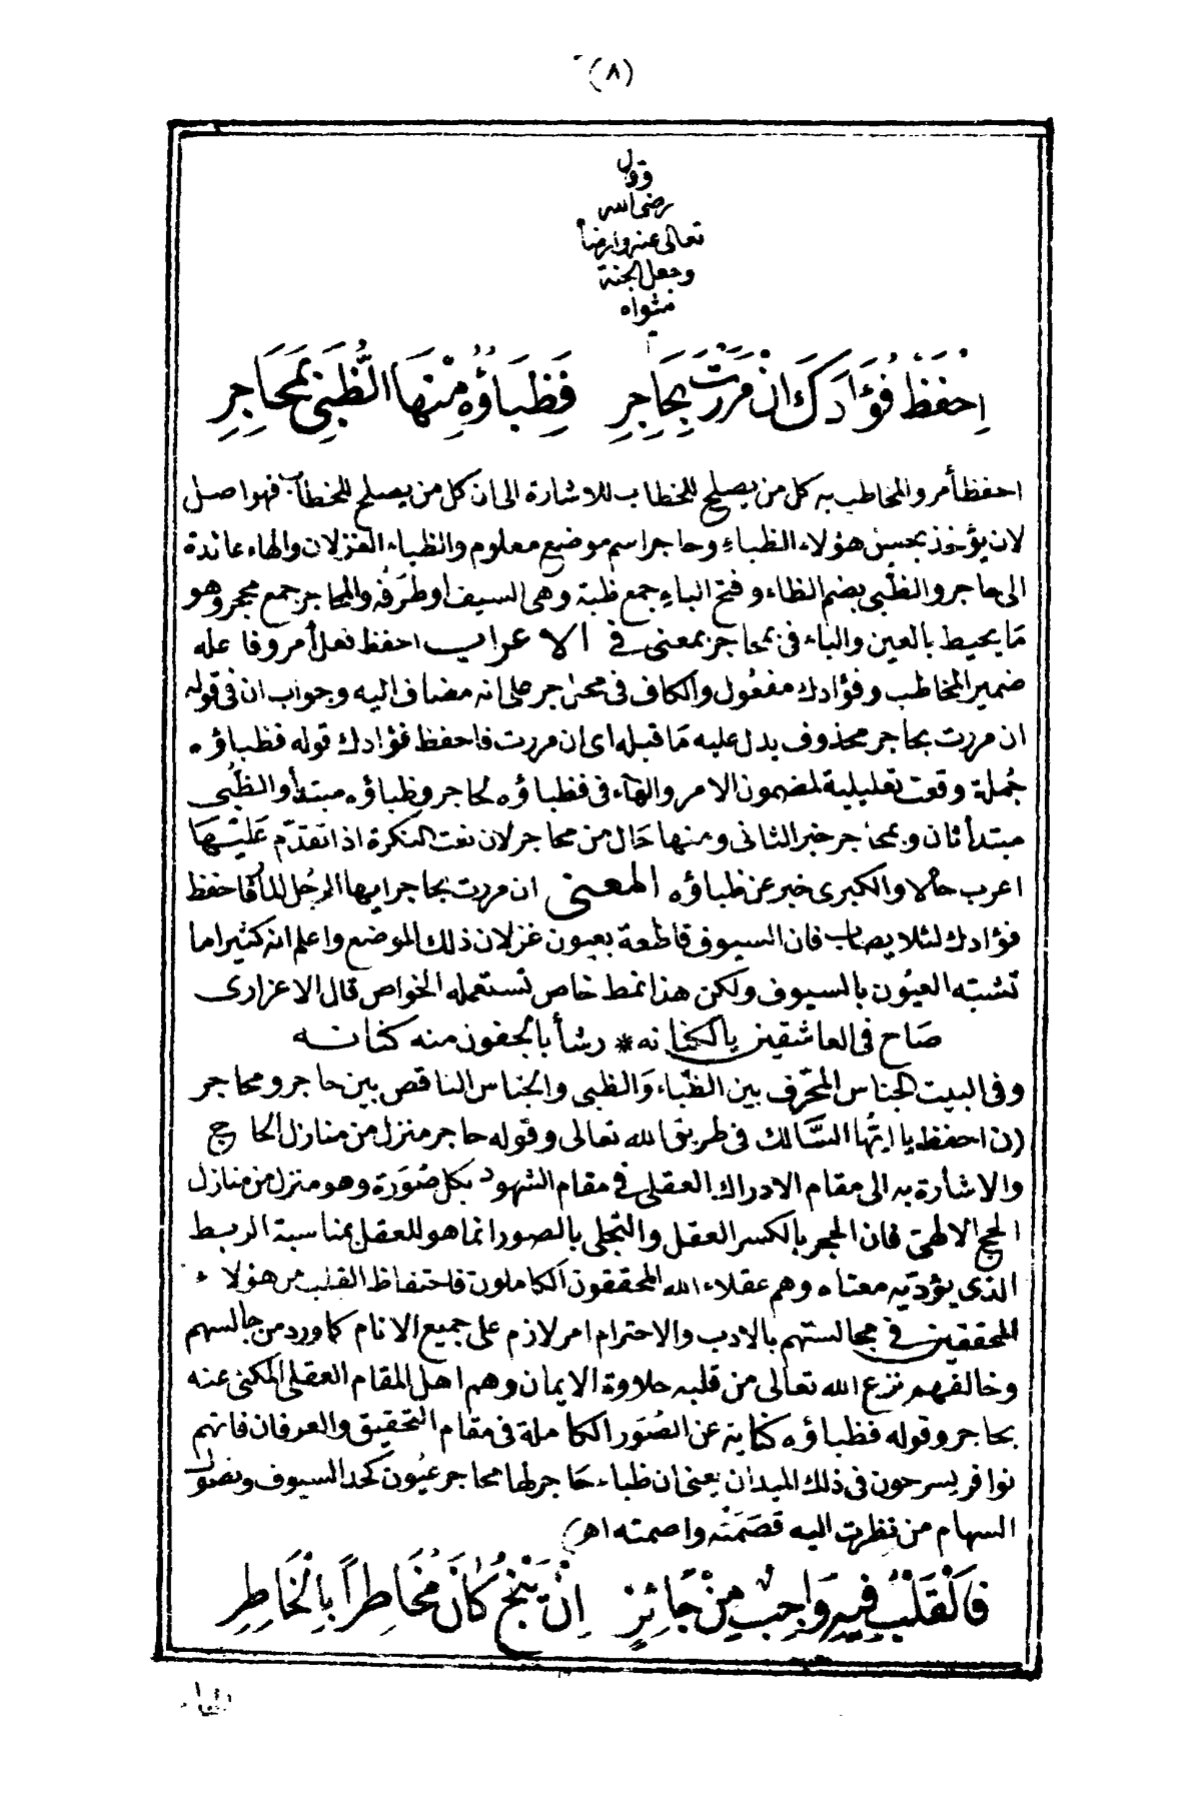 (٨)
وقال
رضى الله
تعالى عنه وارضاه
وجعل الجنة
مثواه
اِحْفَظْ فُؤَادَكَ اِنْ مَرَرْتَ بِحَاجِرِ فَظِبَاؤُهُ مِنْهَا الظُّبَى بِمَحَاجِرِ
احفظ أمر والمخاطب به كل من يصلح للخطاب للاشارة الى ان كل من يصلح للخطاب فهو اصل
لان يؤخذ بحسن هؤلاء الظباء وحاجر اسم موضع معلوم والظباء الغزلان والهاء عائدة
الى حاجر والظُّبى بضم الظاء وفتح الباء جمع ظبة وهى السيف اوطَرَفُه والمحاجر جمع محجر وهو
مَا يحيط بالعين والباء فى بمحاجر بمعنى فى الاعراب احفظ فعل أمر وفاعله
ضمير المخاطب وفؤادك مفعُول والكاف فى محل جر على انه مضاف اليه وجواب ان فى قوله
ان مررت بحاجر محذوف يدل عليه مَا قبله اى ان مررت فاحفظ فؤادك قوله فظباؤه
جُملة وقعت تعليلية لمضمون الامر والهآء فى فظباؤه لحاجر وظباؤه مبتدأ والظُّبى
مبتدأ ثان وبمحاجر خبر الثانى ومنها حَال من محاجر لان نعت النكرة اذا تقدّم عَليْهَا
اعرب حالا والكبرى خبر عن ظباؤه المعنى ان مررت بحاجر ايها الرجُل المار فاحفظ
فؤادك لئلا يصاب فان السيوف قاطعة بعيون غزلان ذلك الموضع واعلم انه كثيرا ما
تشبه العيُون بالسيوف ولكن هذا نمط خاص تستعمله الخواص قال الاعزازى
صَاح فى العاشقين يالكنانه * رشأ بالجفون منه كنانه
وفى البيت الجناس المحرّف بين الظّباء وَالظبى والجناس الناقص بين حاجر ومحاجر
(ن احفظ يا ايّها السَّالك فى طريق الله تعالى وقوله حاجر منزل من منازل الحاج
والاشارة به الى مقام الادراك العقلى فى مقام الشهود بكل صُوَرة وهو منزل من منازل
الحج الالهىّ فان الحجر بالكسر العقل والتجلى بالصور انما هو للعقل بمناسبة الربط
الذى يؤديّه معناه وهم عقلاء الله المحققون الكاملون فاحتفاظ القلب من هؤلاء
المحققين فى مجالستهم بالادب والاحترام امر لازم على جميع الانام كما ورد من جالسهم
وخالفهم نزع الله تعالى من قلبه حلاوة الايمان وهم اهل المقام العقلى المكنى عنه
بحاجر وقوله فظباؤه كناية عن الصُوَر الكاملة فى مقام التحقيق والعرفان فانهم
نوافر يسرحون فى ذلك الميدان يعنى ان ظباء حَاجر لها محاجر عيُون كحد السيوف ونصُول
السهام من نظرت اليه قصَمَتْه واصمته اهـ)
فَالْقَلْبُ فِيهِ وَاجِبٌ مِنْ جَائِزٍ اِنْ يَنْجُ كَانَ مُخَاطِراً بِالْخَاطِرِ